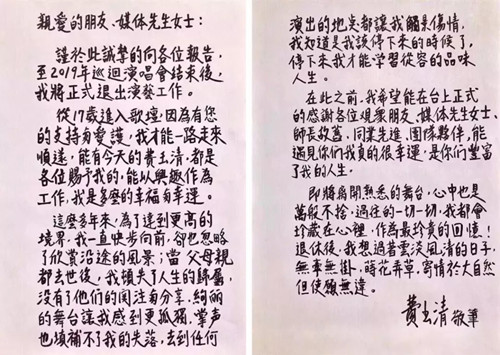 親愛的朋友、媒體先生女士：
謹於此誠摯的向各位報告，
至2019年巡迴演唱會結束後，
我將正式退出演藝工作。
從17歲進入歌壇，因為有您
的支持與愛護，我才能一路走來
順遂，能有今天的費玉清，都是
各位賜予我的，能以興趣作為
工作，我是多麼的幸福與幸運。
這麼多年來，為了達到更高的
境界，我一直快步向前，卻也忽略
了欣賞沿途的風景；當父母親
都去世後，我頓失了人生的歸屬，
沒有了他們的關注與分享，絢麗
的舞台讓我感到更孤獨，掌聲
也填補不了我的失落，去到任何
演出的地點都讓我觸景傷情，
我知道是我該停下來的時候了，
停下來我才能學習從容的品味
人生。
在此之前，我希望能在台上正式
的感謝各位觀眾朋友、媒體先生女士、
師長故舊，同業先進、團隊夥伴，能
遇見你們我真的很幸運，是你們豐富
了我的人生。
即將離開熟悉的舞台，心中也是
萬般不捨，過往的一切一切，我都會
珍藏在心裡，作為最珍貴的回憶！
退休後，我想過著雲淡風清的日子，
無牽無掛，蒔花弄草，寄情於大自然
但使願無違。
費玉清 敬筆